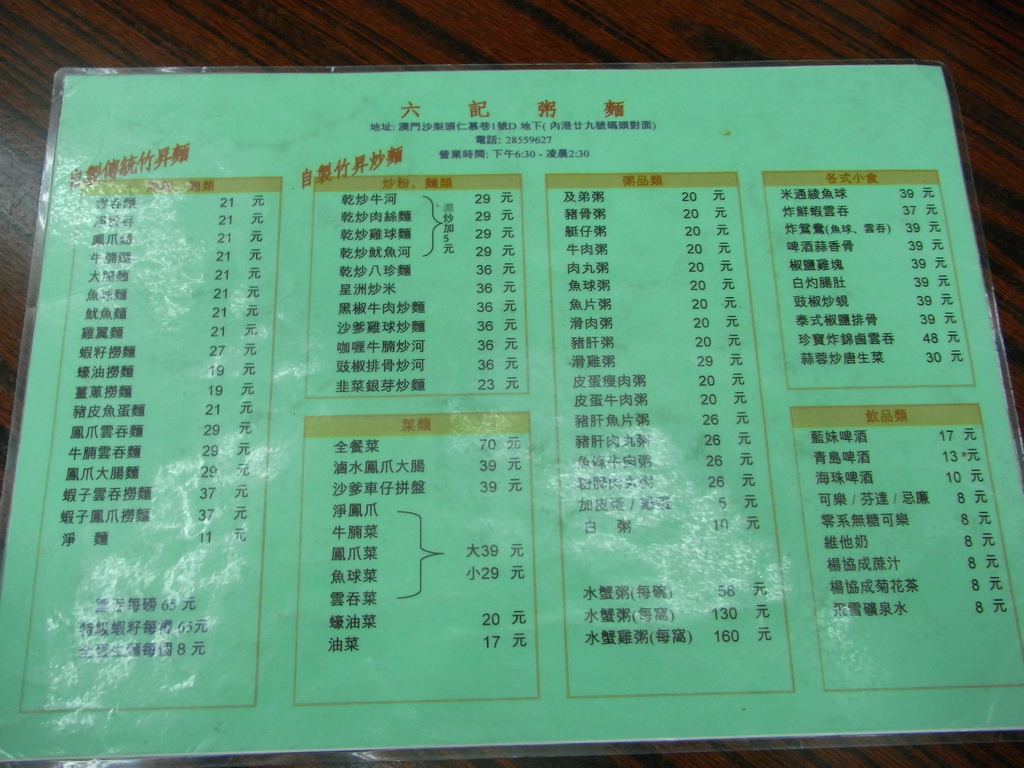 六記粥麵
地址: 澳門沙梨頭仁慕巷1號D 地下( 內港廿九號碼頭對面)
電話: 28559627
營業時間: 下午6:30 - 凌晨2:30
自製傳統竹昇麵
雲吞麵 21 元
21 元
鳳爪麵 21 元
牛腩麵 21 元
大腸麵 21 元
魚球麵 21 元
魷魚麵 21 元
雞翼麵 21 元
蝦籽撈麵 27 元
蠔油撈麵 19 元
薑蔥撈麵 19 元
豬皮魚蛋麵 21 元
鳳爪雲吞麵 29 元
牛腩雲吞麵 29 元
鳳爪大腸麵 29 元
蝦子雲吞撈麵 37 元
蝦子鳳爪撈麵 37 元
淨 麵 11 元
雲吞每磅 65 元
特級蝦籽每樽 65元
全蛋生麵每個 8 元
自製竹昇炒麵
炒粉、麵類
乾炒牛河 29 元
乾炒肉絲麵 29 元
乾炒雞球麵 29 元
乾炒魷魚河 29 元
濕炒加5元
乾炒八珍麵 36 元
星洲炒米 36 元
黑椒牛肉炒麵 36 元
沙爹雞球炒麵 36 元
咖喱牛腩炒河 36 元
豉椒排骨炒河 36 元
韭菜銀芽炒麵 23 元
菜類
全餐菜 70 元
滷水鳳爪大腸 39 元
沙爹車仔拼盤 39 元
淨鳳爪
牛腩菜
鳳爪菜 大39 元
魚球菜 小29 元
雲吞菜
蠔油菜 20 元
油菜 17 元
粥品類
及弟粥 20 元
豬骨粥 20 元
艇仔粥 20 元
牛肉粥 20 元
肉丸粥 20 元
魚球粥 20 元
魚片粥 20 元
滑肉粥 20 元
豬肝粥 20 元
滑雞粥 29 元
皮蛋瘦肉粥 20 元
皮蛋牛肉粥 20 元
豬肝魚片粥 26 元
豬肝肉丸粥 26 元
魚球牛肉粥 26 元
26 元
加皮蛋 / 5 元
白 粥 10 元
水蟹粥(每碗) 58 元
水蟹粥(每窩) 130 元
水蟹雞粥(每窩) 160 元
各式小食
米通綾魚球 39 元
炸鮮蝦雲吞 37 元
炸鴛鴦(魚球、雲吞) 39 元
啤酒蒜香骨 39 元
椒鹽雞塊 39 元
白灼腸肚 39 元
豉椒炒蜆 39 元
泰式椒鹽排骨 39 元
珍寶炸錦鹵雲吞 48 元
蒜蓉炒唐生菜 30 元
飲品類
藍妹啤酒 17 元
青島啤酒 13 元
海珠啤酒 10 元
可樂 / 芬達 / 忌廉 8 元
零系無糖可樂 8 元
維他奶 8 元
楊協成蔗汁 8 元
楊協成菊花茶 8 元
飛雪礦泉水 8 元